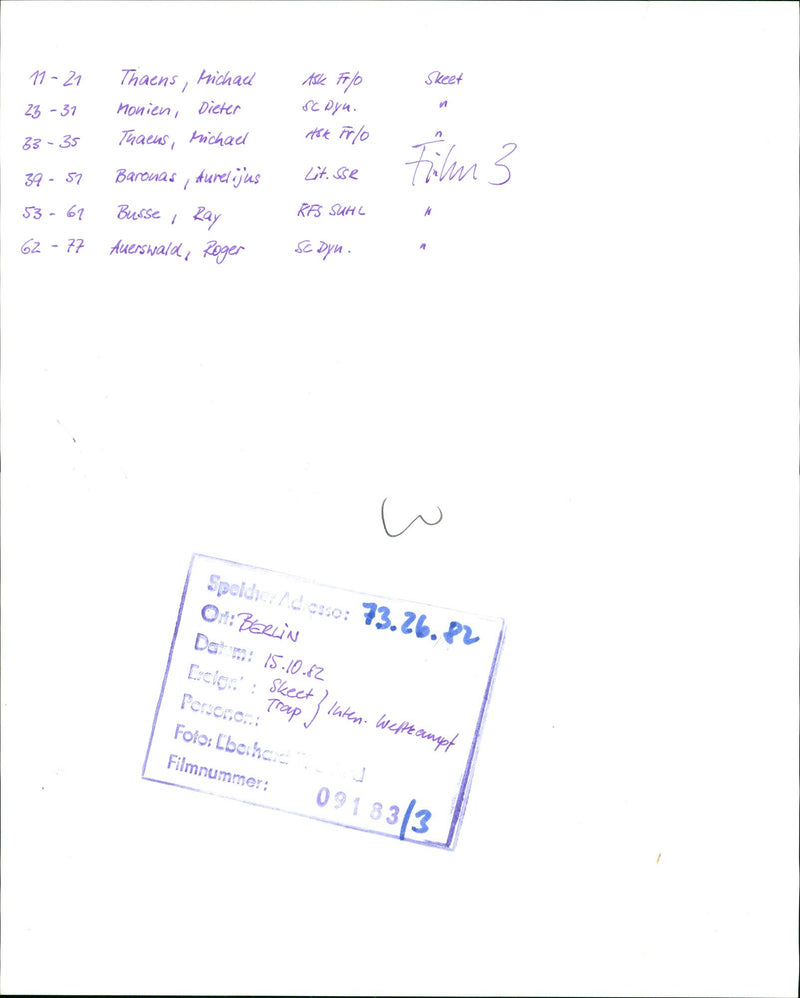 11 - 21 Thaens, Michael ASK Fr/o Skeet
23 - 31 Monien, Dieter SC Dyn. "
33 - 35 Thaens, Michael ASK Fr/o "
Film 3
39 - 51 Baronas, Aurelijus Lit. SSR
53 - 61 Busse, Ray RFS SUHL "
62 - 77 Auerswald, Roger SC Dyn. "
Speicher Adresse: 73.26.82
Ort: BERLiN
Datum: 15.10.82
Ereign : Skeet } Inten. Wettkampf
Personen: Trap
Foto: Eberhard
Filmnummer: 09183/3